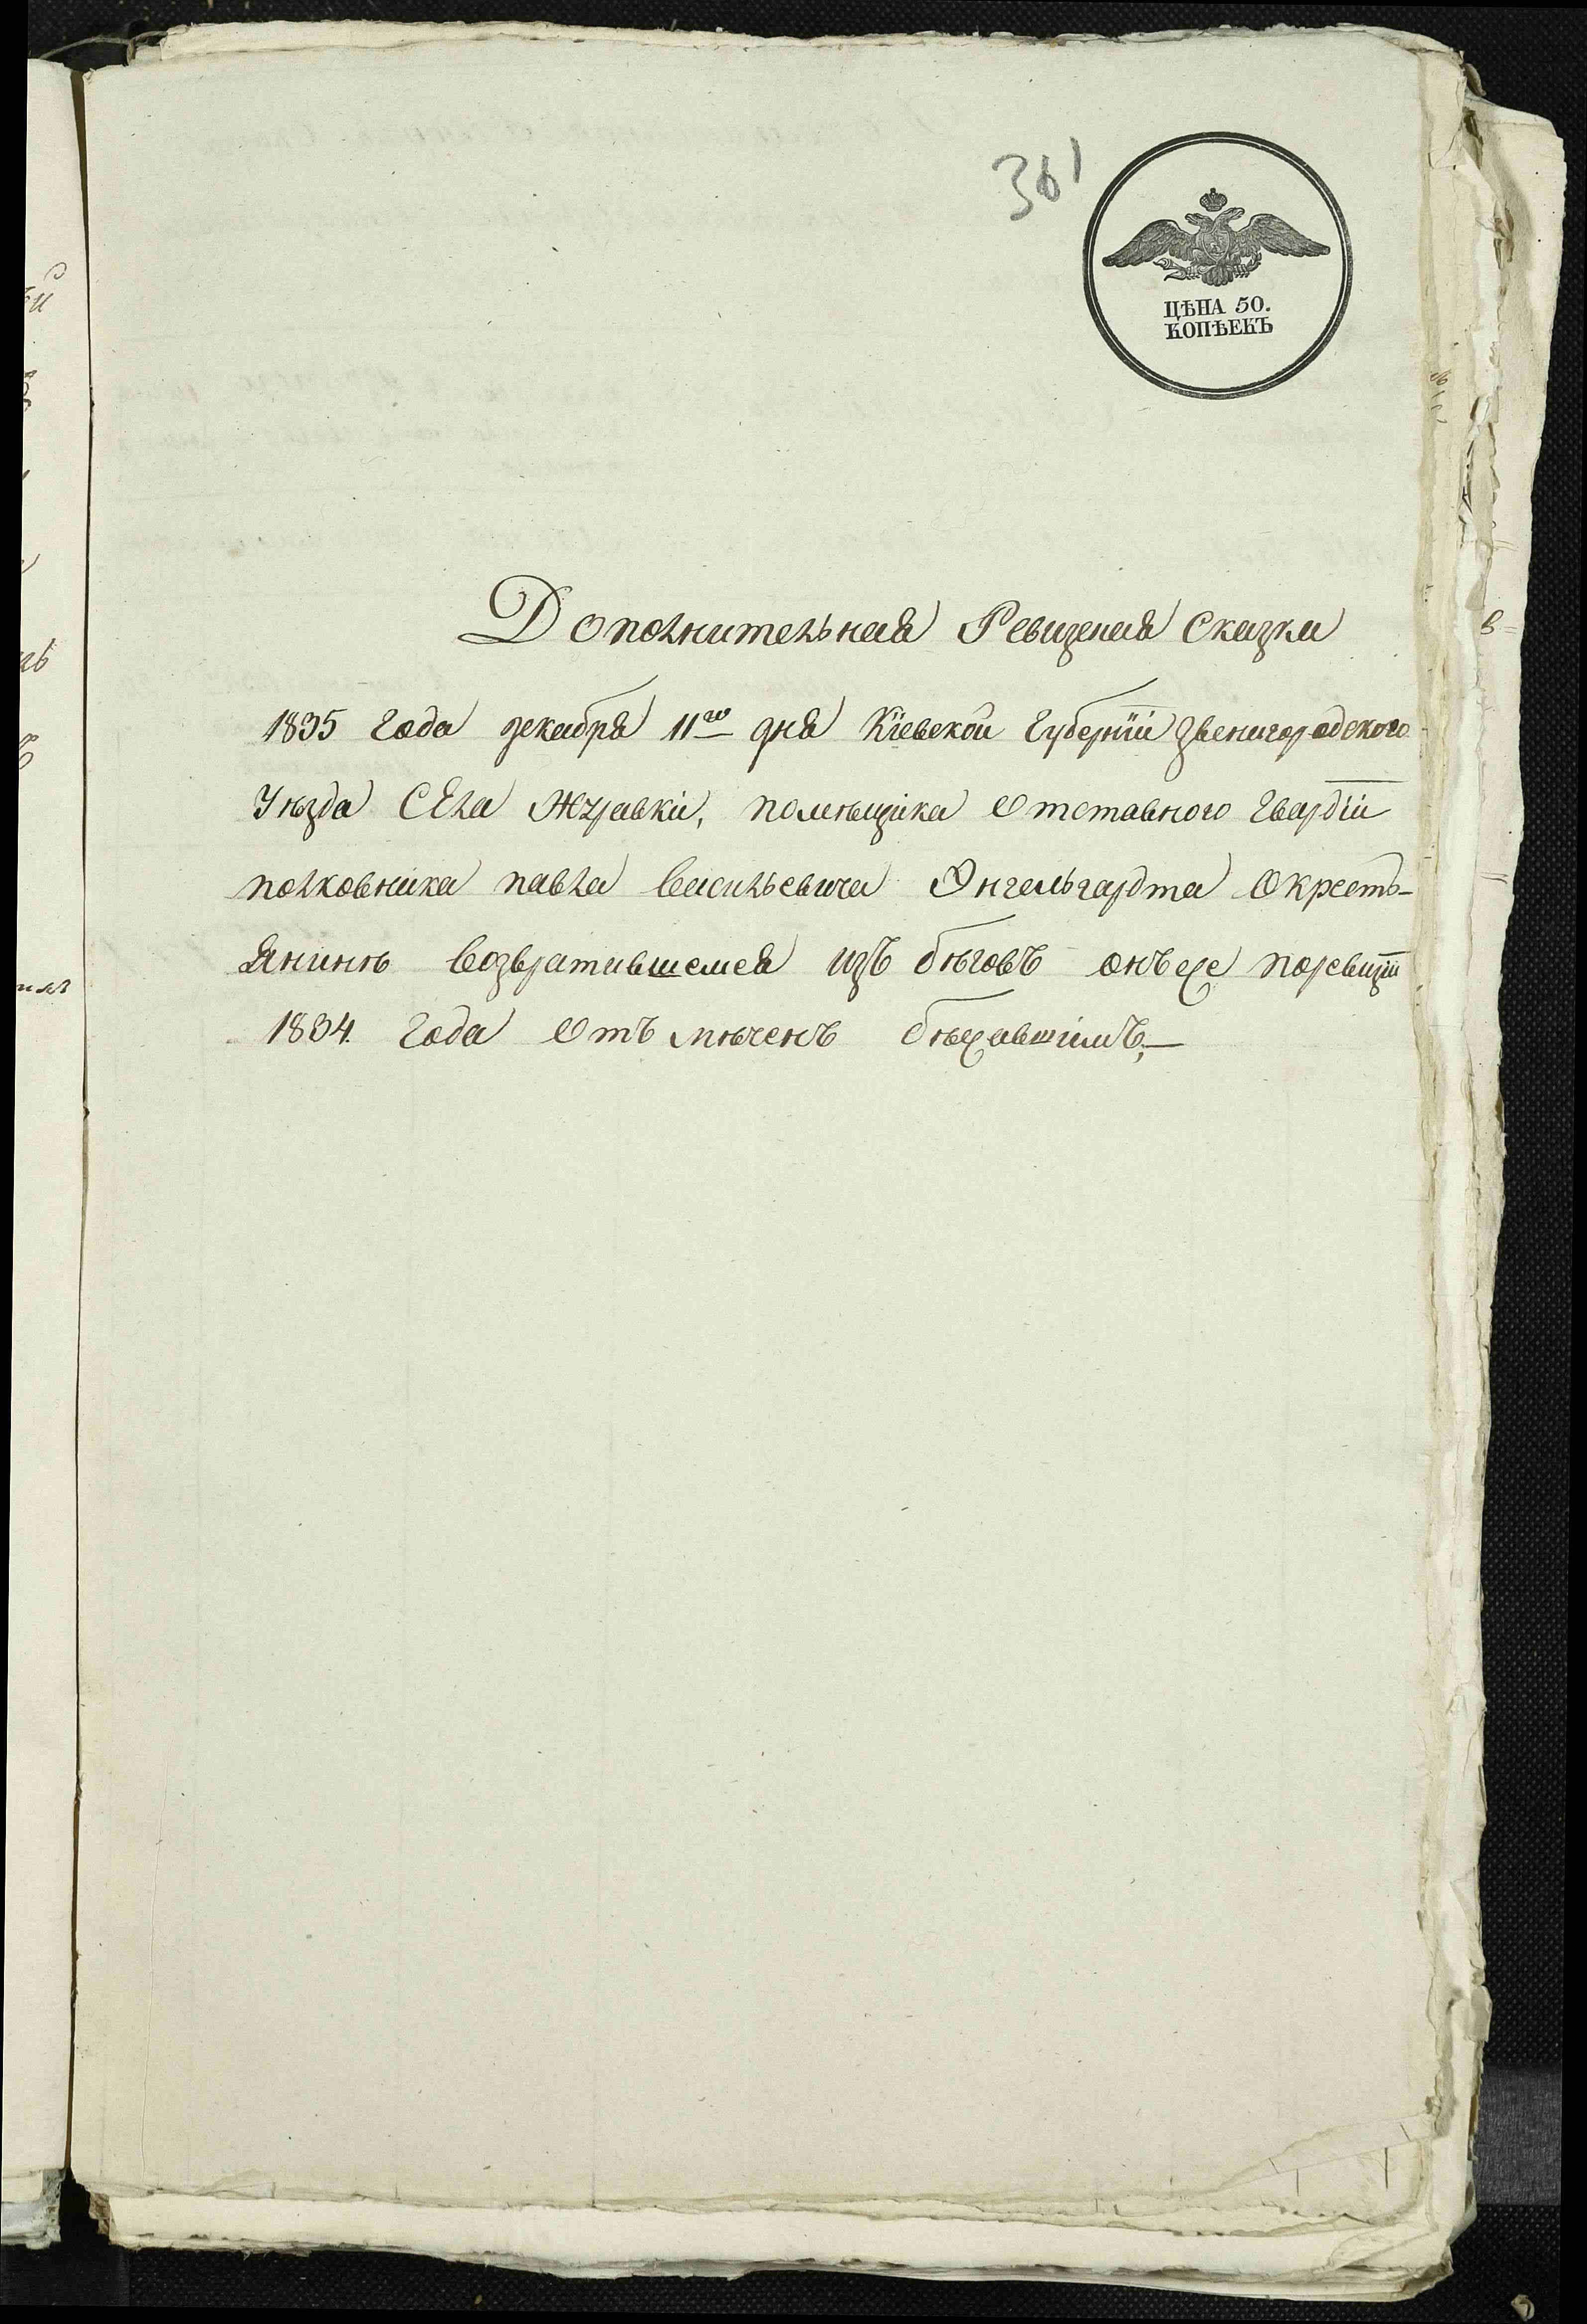 361
ЦѢНА 50.
КОПѢЕКЪ
Дополнительная Ревизеная Сказка
1835 года декабря 11го дня Кіевской Губерніи Звенигородского
Уѣзда Села Журавки, помѣщика Отставного Гвардіи
полковника павла васильевича Энгельгардта Окресть-
янинѣ возвратившемся изъ бѣговъ онъже поревизіи
1834. года Отъ мѣченъ бѣжавшімъ,—